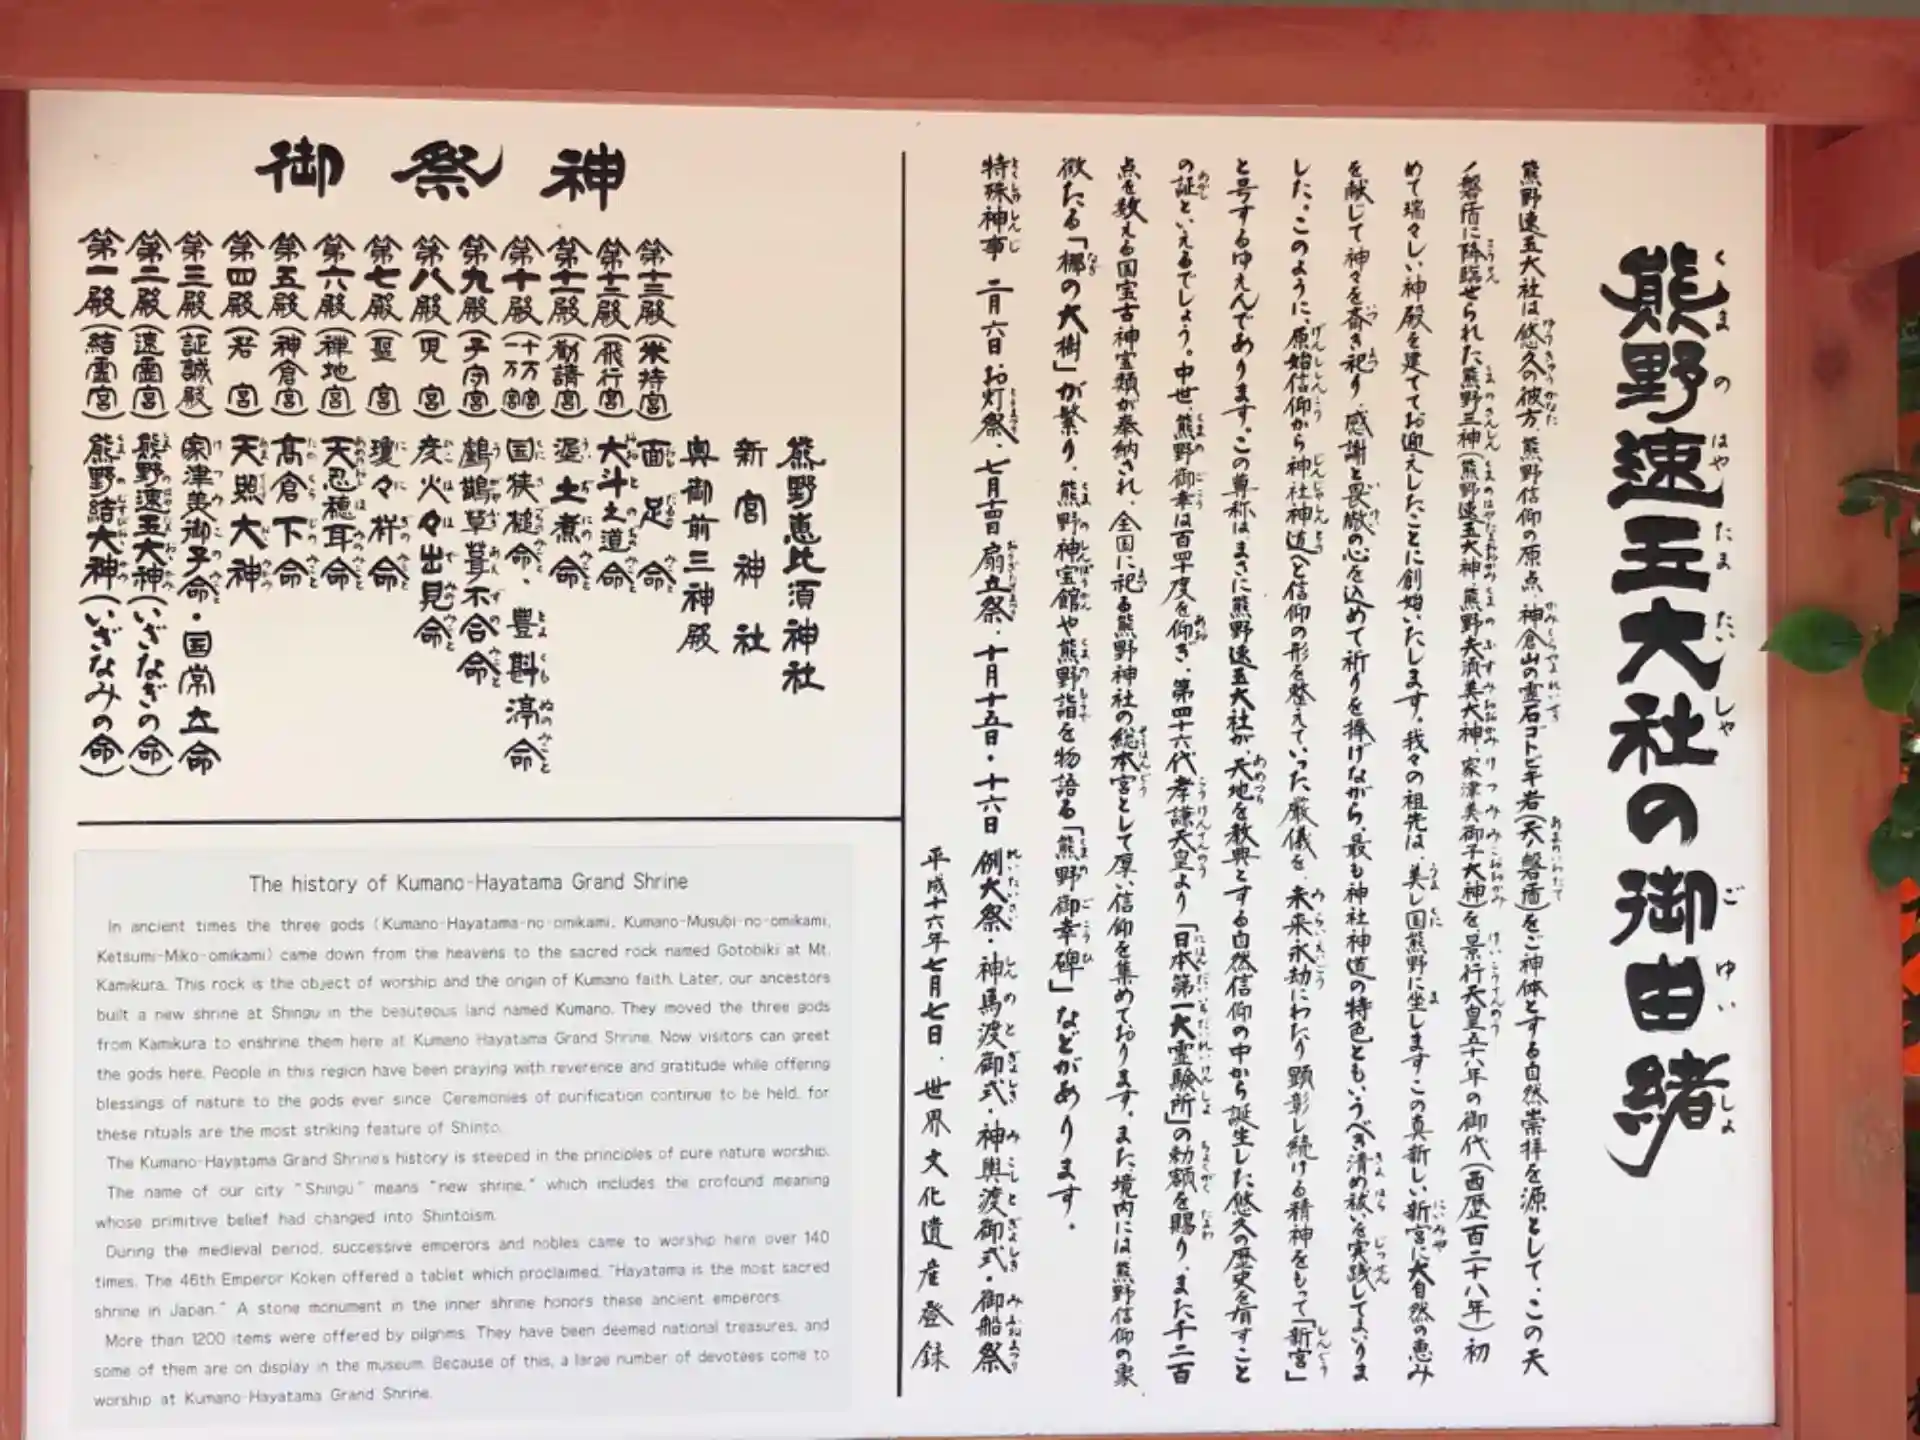 熊野速玉大社の御由緒
熊野速玉大社は悠久の彼方、熊野信仰の原点、神倉山の霊石ゴトビキ岩(天ノ磐盾)をご神体とする自然崇拝を源として、この天
ノ磐盾に降臨せられた熊野三神(熊野速玉大神、熊野夫須美大神、家津美御子大神)を、景行天皇五十八年の御代(西歴百二十八年)初
めて瑞々しい神殿を建ててお迎えしたことに創始いたします。我々の祖先は、美し国熊野に坐します この真新しい新宮に大自然の恵み
を献じて神々を斎き祀り、感謝と畏敬の心を込めて祈りを捧げながら、最も神社神道の特色ともいうべき清め祓いを実践してまいりま
した。このように、原始信仰から神社神道へと信仰の形を整えていった厳儀を、未来永劫にわたり顕彰し続ける精神をもって「新宮」
と号するゆえんであります。この尊称は、まさに熊野速玉大社が、天地を教典とする自然信仰の中から誕生した悠久の歴史を有すこと
の証といえるでしょう。中世、熊野御幸は百四十度を仰ぎ、第四十六代孝謙天皇より「日本第一大霊験所」の勅額を賜り、また千二百
点を数える国宝古神宝類が奉納され、全国に祀る熊野神社の総本宮として厚い信仰を集めております。また、境内には、熊野信仰の象
徴たる「梛の大樹」が繁り、熊野神宝館や熊野詣を物語る「熊野御幸碑」などがあります。
特殊神事 二月六日 お灯祭、七月十四日 扇立祭、十月十五日・十六日 例大祭・神馬渡御式・神輿渡御式・御船祭
平成十六年七月七日、世界文化遺産登録
御祭神
熊野恵比須神社
新宮神社
奥御前三神殿
第十三殿(米持宮) 面足命
第十二殿(飛行宮) 大斗之道命
第十一殿(勧請宮) 埿土煮命
第十殿(一万宮 十万宮) 国狭槌命、豊斟渟命
第九殿(子守宮) 鸕鶿草葺不合命
第八殿(児宮) 彦火々出見命
第七殿(聖宮) 瓊々杵命
第六殿(禅地宮) 天忍穂耳命
第五殿(神倉宮) 高倉下命
第四殿(若宮) 天照大神
第三殿(証誠殿) 家津美御子命・国常立命
第二殿(速霊宮) 熊野速玉大神(いざなぎの命)
第一殿(結霊宮) 熊野結大神(いざなみの命)
The history of Kumano-Hayatama Grand Shrine
In ancient times the three gods (Kumano-Hayatama-no-omikami, Kumano-Musubi-no-omikami,
Ketsumi-Miko-omikami) came down from the heavens to the sacred rock named Gotobiki at Mt.
Kamikura. This rock is the object of worship and the origin of Kumano faith. Later, our ancestors
built a new shrine at Shingu in the beauteous land named Kumano. They moved the three gods
from Kamikura to enshrine them here at Kumano Hayatama Grand Shrine. Now visitors can greet
the gods here. People in this region have been praying with reverence and gratitude while offering
blessings of nature to the gods ever since. Ceremonies of purification continue to be held, for
these rituals are the most striking feature of Shinto.
The Kumano-Hayatama Grand Shrine's history is steeped in the principles of pure nature worship.
The name of our city "Shingu" means "new shrine," which includes the profound meaning
whose primitive belief had changed into Shintoism.
During the medieval period, successive emperors and nobles came to worship here over 140
times. The 46th Emperor Koken offered a tablet which proclaimed, "Hayatama is the most sacred
shrine in Japan." A stone monument in the inner shrine honors these ancient emperors.
More than 1200 items were offered by pilgrims. They have been deemed national treasures, and
some of them are on display in the museum. Because of this, a large number of devotees come to
worship at Kumano-Hayatama Grand Shrine.